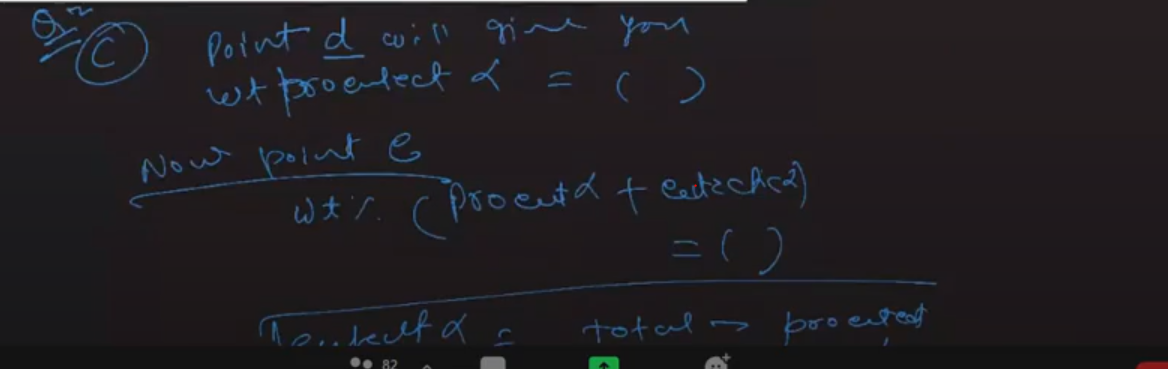 Q2
(C) Point d will give you
wt proeutect α = ( )
Now point e
wt %. (Proeut α + eutectic α)
= ( )
α = total → proeutect
82